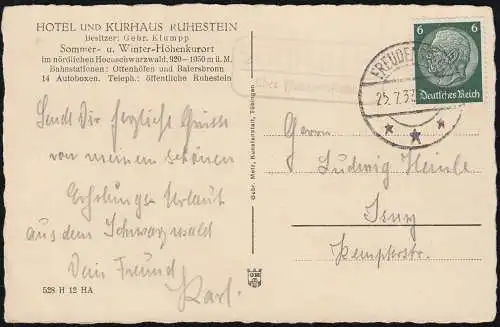 HOTEL UND KURHAUS RUHESTEIN
Besitzer: Gebr. Klumpp
Sommer- u. Winter-Höhenkurort
im nördlichen Hochschwarzwald, 920—1050 m ü. M.
Bahnstationen: Ottenhöfen und Baiersbronn
14 Autoboxen. Teleph.: öffentliche Ruhestein
Sende Dir herzliche Grüsse
von meinem schönen
Erholungs-Urlaub
aus dem Schwarzwald
Dein Freund
Karl.
528 H 12 HA
Gebr. Metz, Kunstanstalt, Tübingen
über
FREUDEN
25.7.33
6 6
Deutsches Reich
Herrn
Ludwig Heinle
Isny
Kemptnerstr.